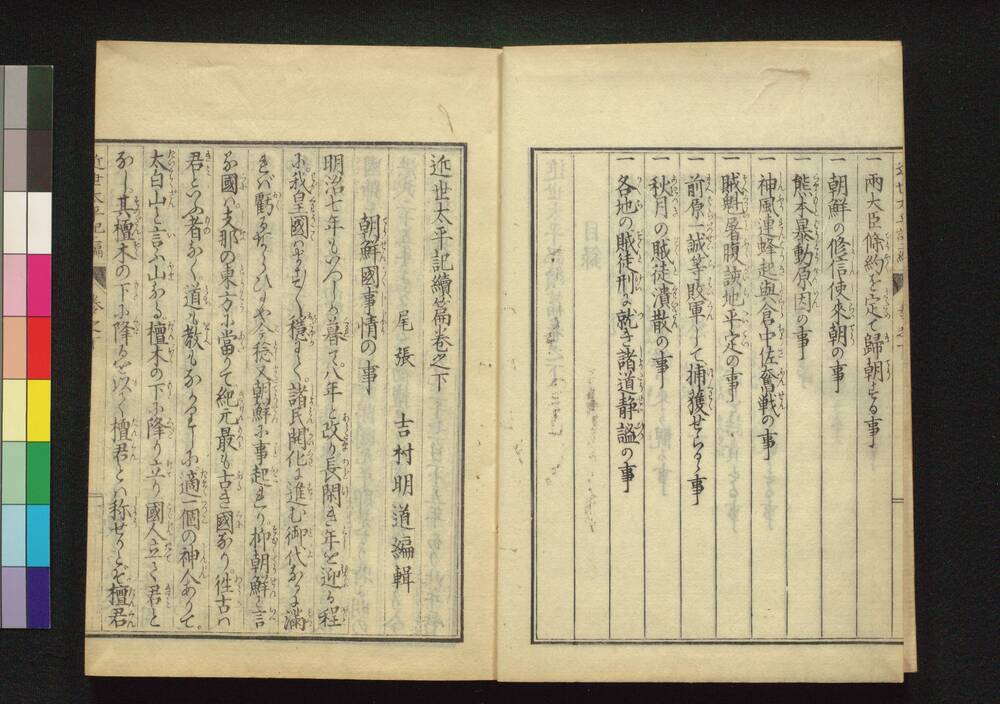 一 兩大臣條約を定て歸朝する事
一 朝鮮の修信使來朝の事
一 熊本暴動原因の事
一 神風連蜂起與倉中佐奮戰の事
一 賊魁署腹該地平定の事
一 前原一誠等敗軍して捕獲せらるゝ事
一 秋月の賊徒潰散の事
一 各地の賊徒刑に就き諸道静謐の事
近世太平記續篇卷之下
尾張 吉村明道編輯
朝鮮國事情の事
明治七年もいつしか暮て八年と改り長閑き年を迎る程
に我皇國はます〳〵穩にて諸民開化に進む御代なるに滿
れば虧るならひにや今稔又朝鮮に事起れり抑朝鮮と言
る國ハ支那の東方に當りて紀元最も古き國なり徃古ハ
君といふ者なく道も教もなかりしに適一個の神人ありて
太白山と言ふ山なる檀木の下に降り立り國人立て君と
なし其檀木の下に降るを以て檀君とハ称せりとぞ檀君